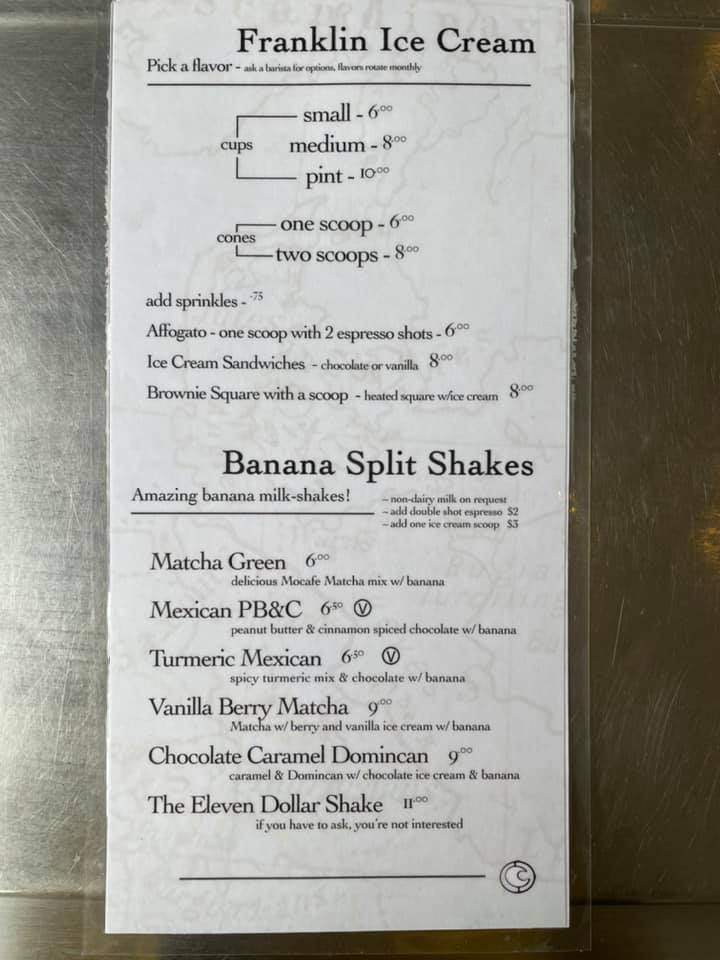 Franklin Ice Cream
Pick a flavor - ask a barista for options, flavors rotate monthly
small - 6.00
cups medium - 8.00
pint - 10.00
one scoop - 6.00
cones
two scoops - 8.00
add sprinkles - .75
Affogato - one scoop with 2 espresso shots - 6.00
Ice Cream Sandwiches - chocolate or vanilla 8.00
Brownie Square with a scoop - heated square w/ice cream 8.00
Banana Split Shakes
Amazing banana milk-shakes!
~ non-dairy milk on request
~ add double shot espresso $2
~ add one ice cream scoop $3
Matcha Green 6.00
delicious Mocafe Matcha mix w/ banana
Mexican PB&C 6.50 Ⓥ
peanut butter & cinnamon spiced chocolate w/ banana
Turmeric Mexican 6.50 Ⓥ
spicy turmeric mix & chocolate w/ banana
Vanilla Berry Matcha 9.00
Matcha w/ berry and vanilla ice cream w/ banana
Chocolate Caramel Domincan 9.00
caramel & Domincan w/ chocolate ice cream & banana
The Eleven Dollar Shake 11.00
if you have to ask, you're not interested